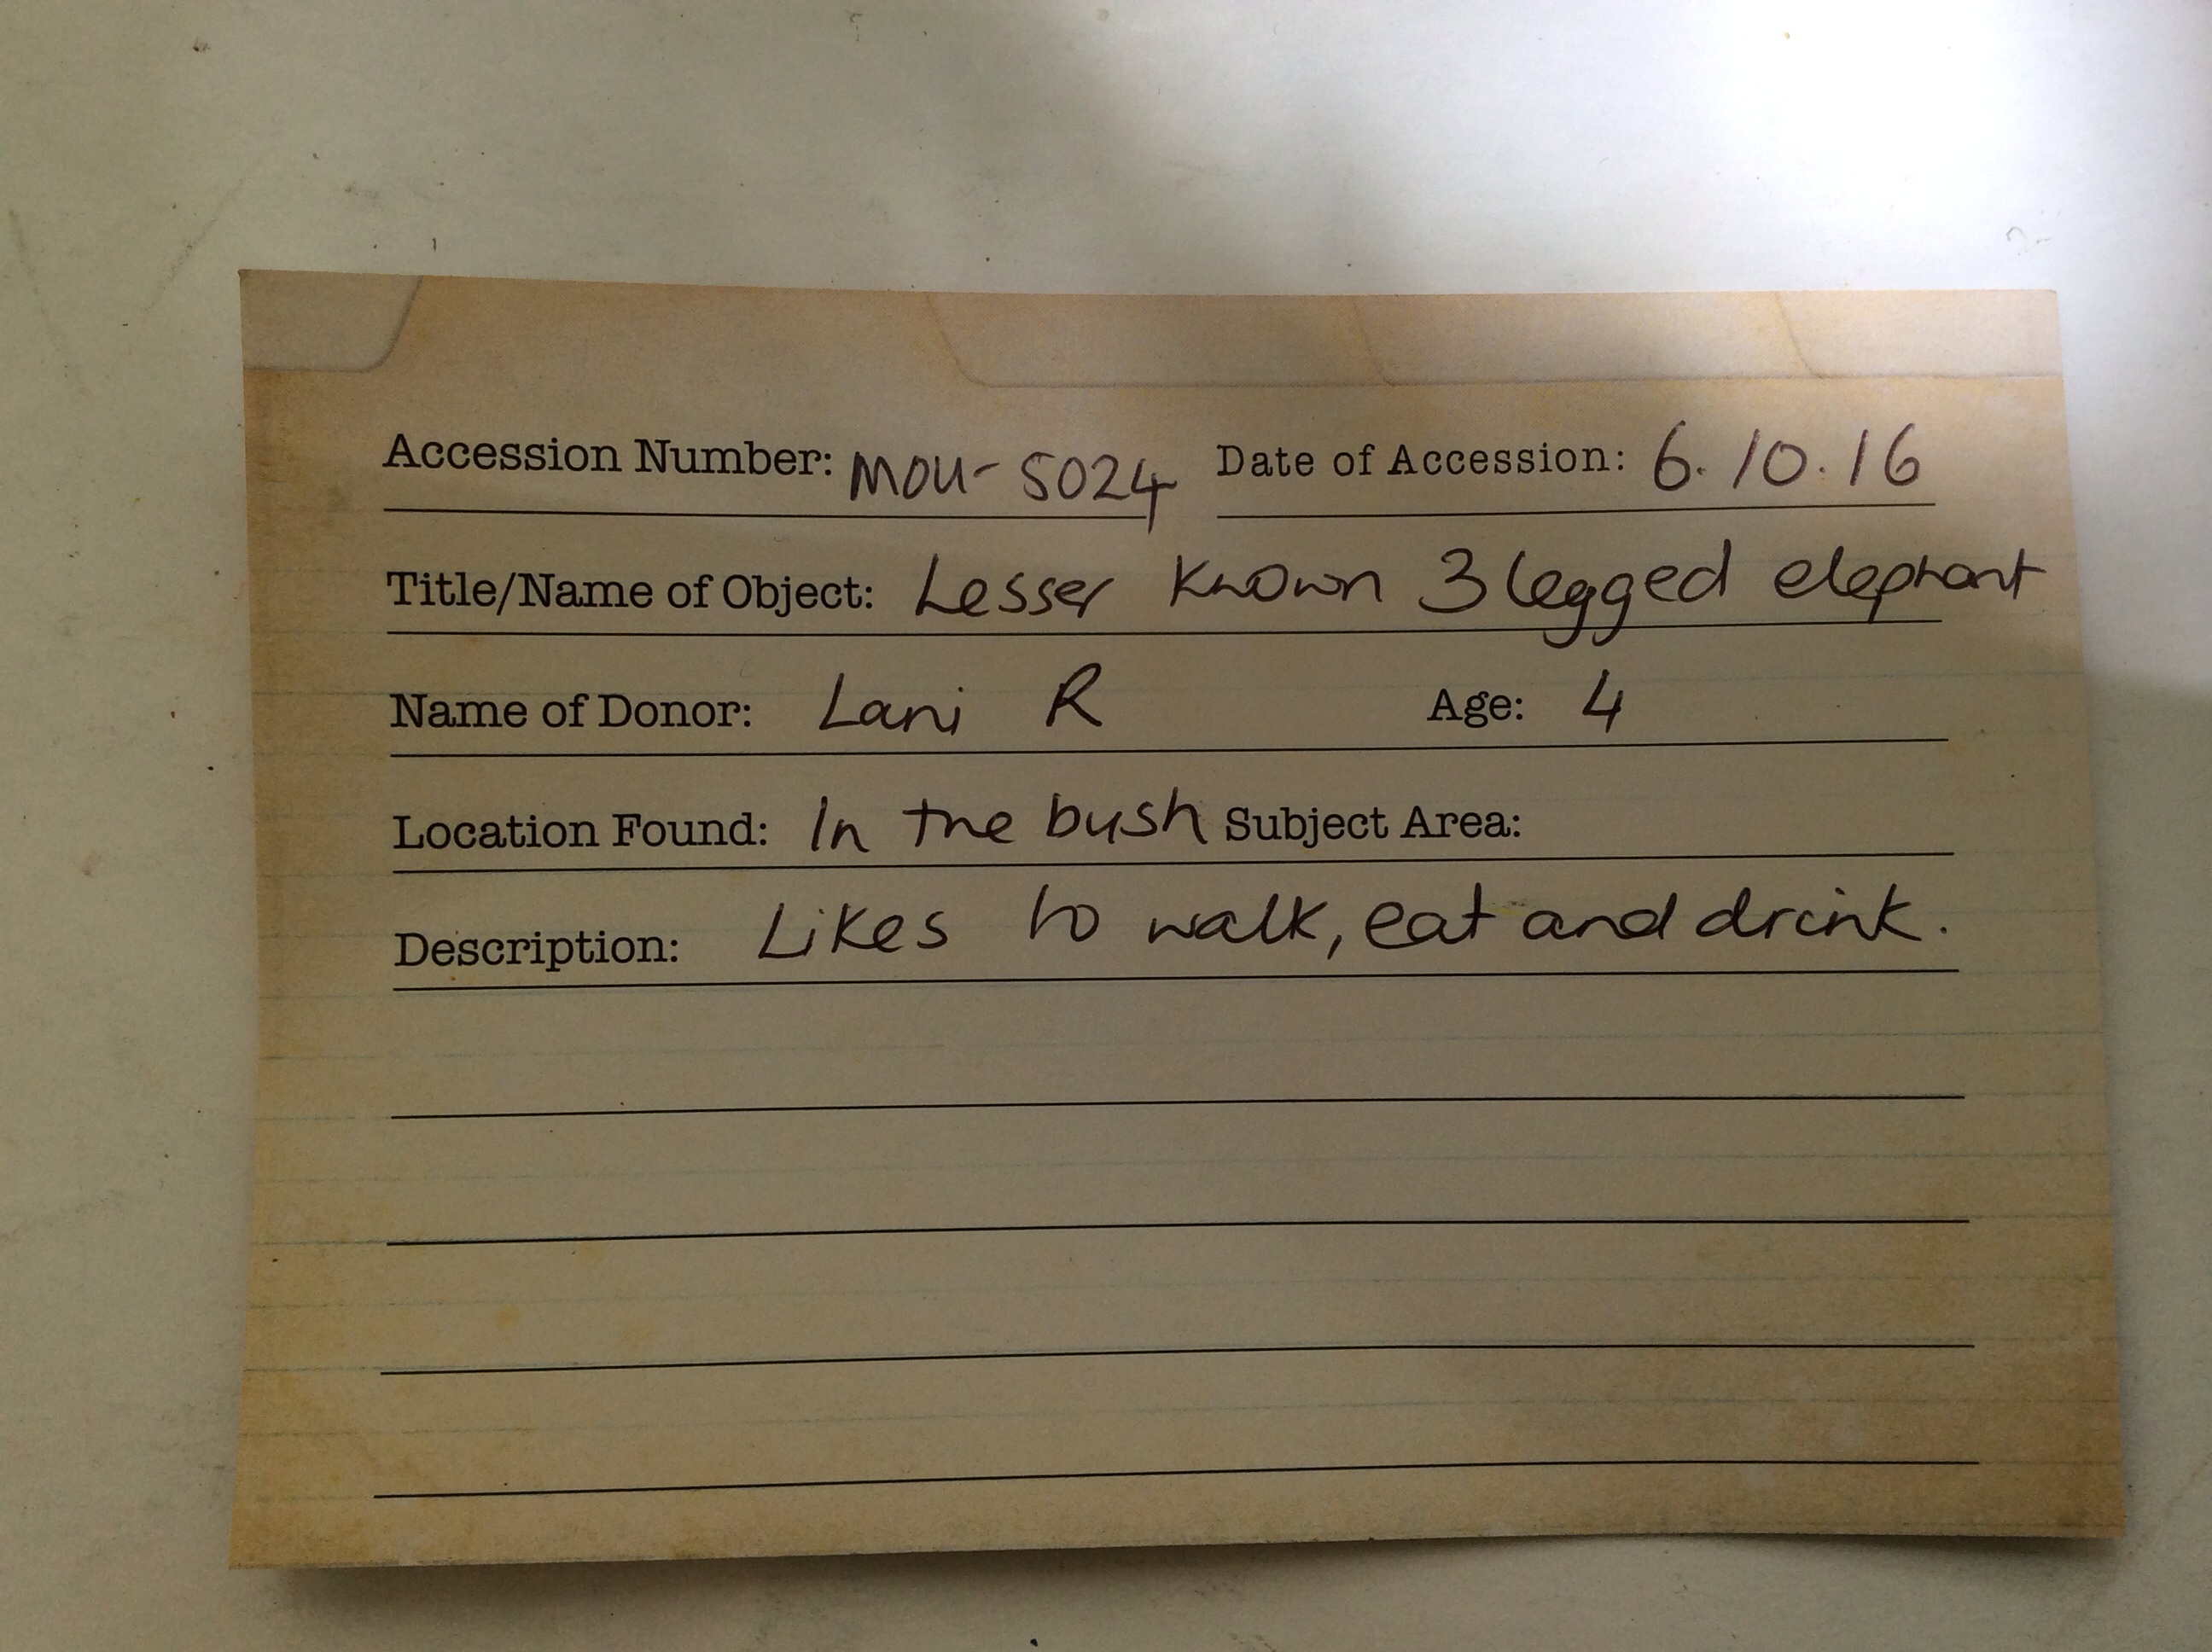 Accession Number: MOU-5024 Date of Accession: 6.10.16
Title/Name of Object: Lesser known 3 legged elephant
Name of Donor: Lani R Age: 4
Location Found: In the bush Subject Area:
Description: Likes to walk, eat and drink.